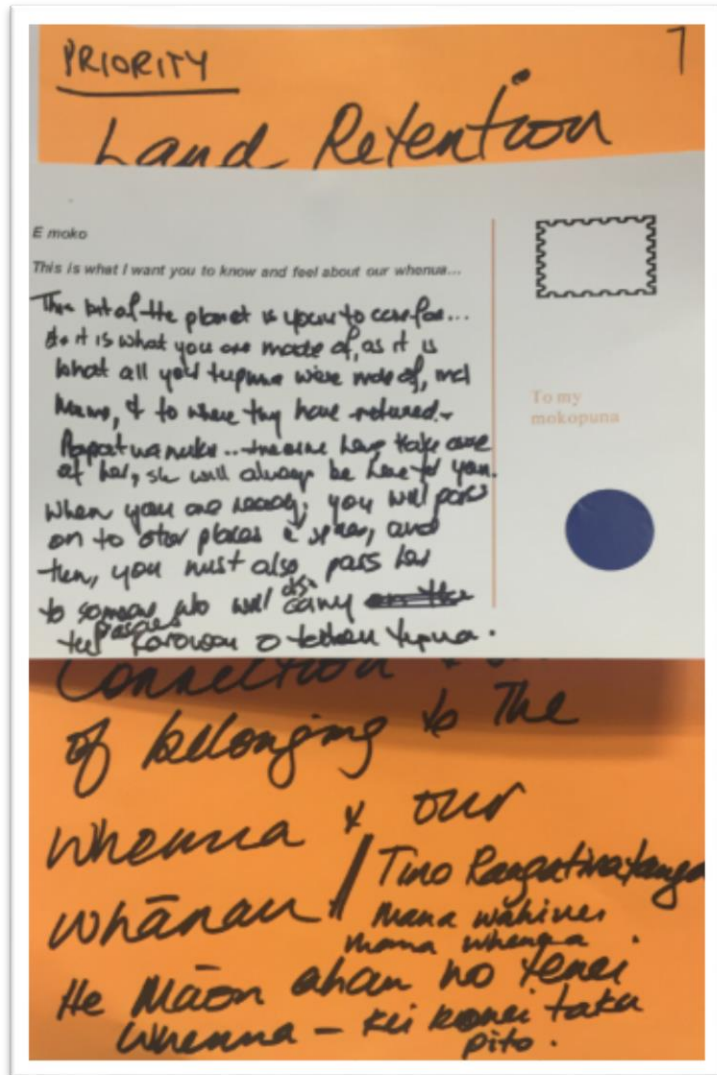 PRIORITY
7
Land Retention
E moko
This is what I want you to know and feel about our whenua...
This bit of the planet is yours to care for...
it is what you are made of, as it is
what all your tupuna were made of, incl
Mums, & to where they have returned.
Papatuanuku... take care
of her, she will always be here for you.
When you are ready, you will pass
on to other places & spaces, and
then, you must also pass her
to someone who will also carry
korowai o tupuna.
To my
mokopuna
Connection
of belonging to The
whenua & our
whānau
Tino Rangatiratanga
Mana wāhine
mana whenua.
He Māori ahau no tenei
whenua – kei konei taku
pito.